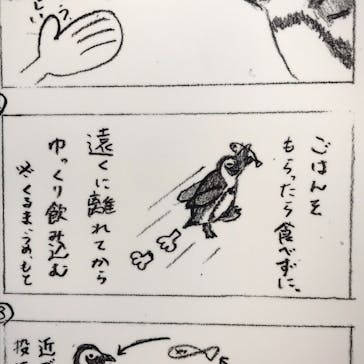 しい
ごはんを
もらったら食べずに、
遠くに離れてから
ゆっくり飲み込む
※くるま、うめ、もと
近づ
投